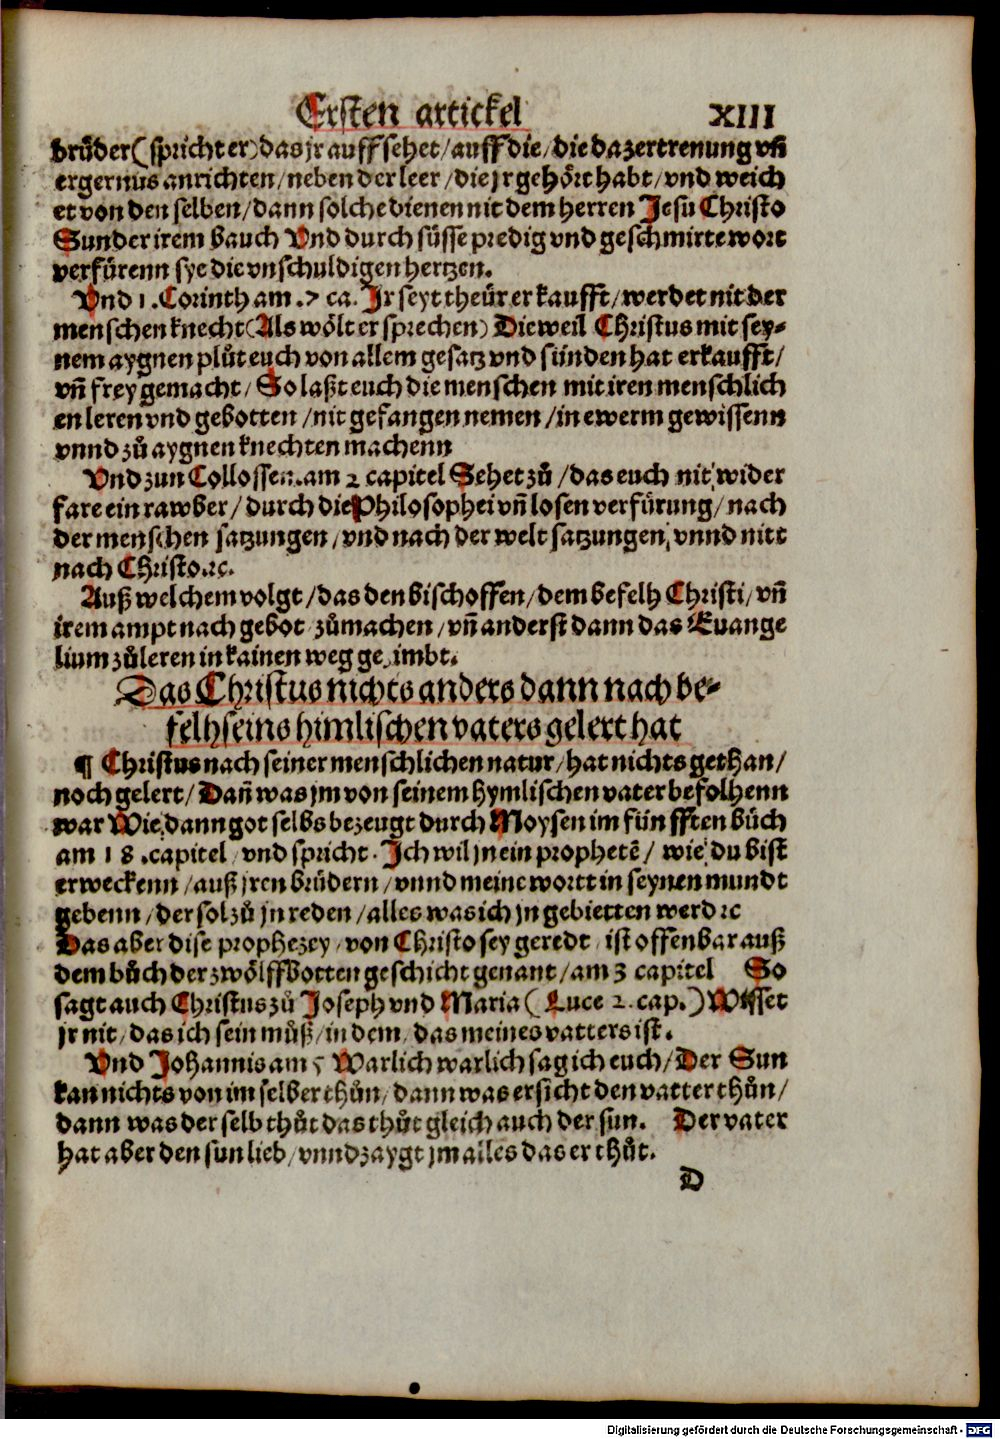 Ersten artickel XIII
brůder (spricht er) das jr auff sehet / auff die / die da zertrenung vñ
ergernus anrichten / neben der leer / die jr gehört habt / vnd weich
et von den selben / dann solche dienen nit dem herren Jesu Christo
Sunder irem bauch Vnd durch süsse predig vnd geschmirte wort
verfürenn sye die vnschuldigen hertzen.
Vnd 1. Corinth am .7 ca. Jr seyt theür erkaufft / werdet nit der
menschen knecht (Als wölt er sprechen) Die weil Christus mit sey-
nem aygnen plůt euch von allem gesatz vnd sünden hat erkaufft /
vñ frey gemacht / So laßt euch die menschen mit iren menschlich
en leren vnd gebotten / nit gefangen nemen / in ewerm gewissenn
vnnd zů aygnen knechten machenn
Vnd zun Collossen. am 2 capitel Sehet zů / das euch nit wider
fare ein rawber / durch die Philosophei vñ losen verfürung / nach
der menschen satzungen / vnd nach der welt satzungen / vnnd nitt
nach Christo.ꝛc.
Auß welchem volgt / das den bischoffen / dem befelh Christi / vñ
irem ampt nach gebot zůmachen / vñ anderst dann das Euange
lium zůleren in kainen weg gezimbt.
Das Christus nichts anders dann nach be-
felh seins himlischen vaters gelert hat
¶ Christus nach seiner menschlichen natur / hat nichts gethan /
noch gelert / Dañ was jm von seinem hymlischen vater befolhenn
war Wie dann got selbs bezeugt durch Moysen im fünfften bůch
am 18 .capitel / vnd spricht. Ich wil jn ein prophetē / wie du bist
erweckenn / auß jren brůdern / vnnd meine wortt in seynen mundt
gebenn / der sol zů jn reden / alles was ich jn gebietten werd ꝛc
Das aber dise prophezey / von Christo sey geredt / ist offenbar auß
dem bůch der zwölffbotten geschicht genant / am 3 capitel So
sagt auch Christus zů Joseph vnd Maria (Luce 2. cap.) Wisset
jr nit / das ich sein můß / in dem / das meines vatters ist.
Vnd Johannis am 5 Warlich warlich sag ich euch / Der Sun
kan nichts von im selber thůn / dann was er sicht den vatter thůn /
dann was der selb thůt das thůt gleich auch der sun. Der vater
hat aber den sun lieb / vnnd zaygt jm alles das er thůt.
D
Digitalisierung gefördert durch die Deutsche Forschungsgemeinschaft - DFG